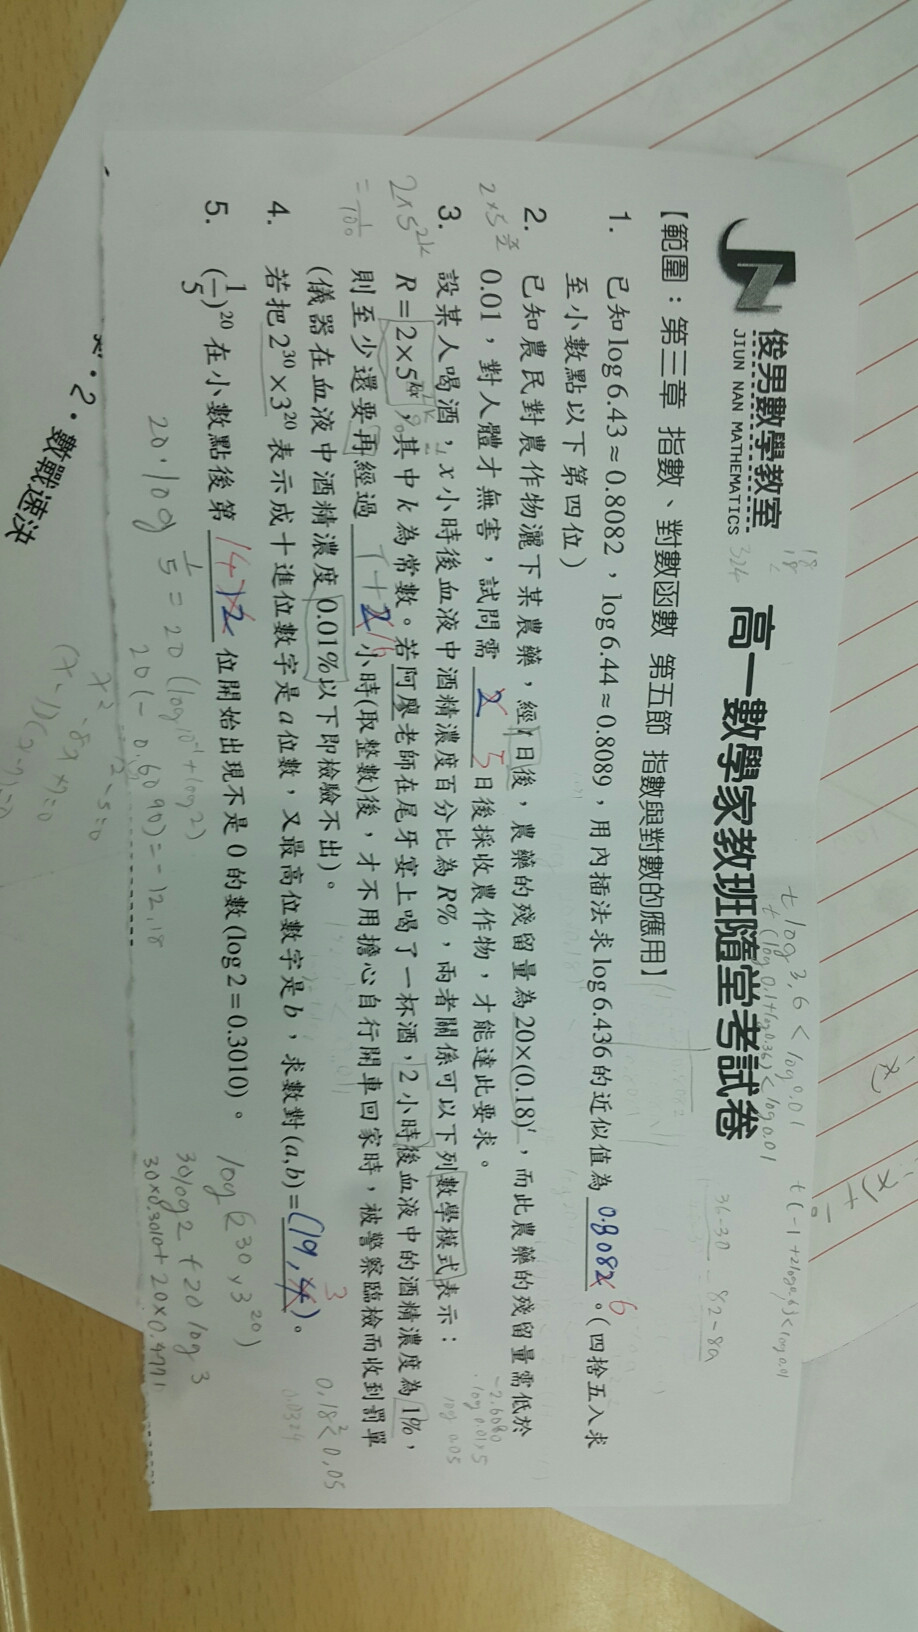 俊男數學教室
JIUN NAN MATHEMATICS
高一數學家教班隨堂考試卷
【範圍：第三章 指數、對數函數 第五節 指數與對數的應用】
1. 已知log6.43≈0.8082，log6.44≈0.8089，用內插法求log6.436的近似值為 0.8082 6 。(四捨五入求
至小數點以下第四位)
2. 已知農民對農作物灑下某農藥，經t日後，農藥的殘留量為20×(0.18)^t，而此農藥的殘留量需低於
0.01，對人體才無害，試問需 2 5 日後採收農作物，才能達此要求。
3. 設某人喝酒，x小時後血液中酒精濃度百分比為R%，兩者關係可以下列數學模式表示：
R=2×5^kx，其中k為常數。若阿廖老師在尾牙宴上喝了一杯酒，2小時後血液中的酒精濃度為1%，
則至少還要再經過 小時(取整數)後，才不用擔心自行開車回家時，被警察臨檢而收到罰單
(儀器在血液中酒精濃度0.01%以下即檢驗不出)。
4. 若把2^30×3^20表示成十進位數字是a位數，又最高位數字是b，求數對(a,b)= (19,4) 3 。
5. (1/5)^20在小數點後第 14 12 位開始出現不是0的數(log2=0.3010)。
324
t log 3.6 < log 0.01
t(log 0.1+log 0.36) < log 0.01
36-30
82-89
2×5^2k
=1/100
-2.6080
log 0.01×5
log 0.05
0.18² < 0.05
0.0324
log(2^30×3^20)
30log2+20log3
30×0.3010+20×0.4771
20·log 1/5=20(log10^-1+log2)
20(-0.6090)=-12.18
x²-8x+7=0
(x-1)(x-7)=0
·2·數戰速決